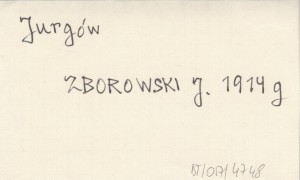 Jurgów
ZBOROWSKI J. 1914 g
BT/OP/4748